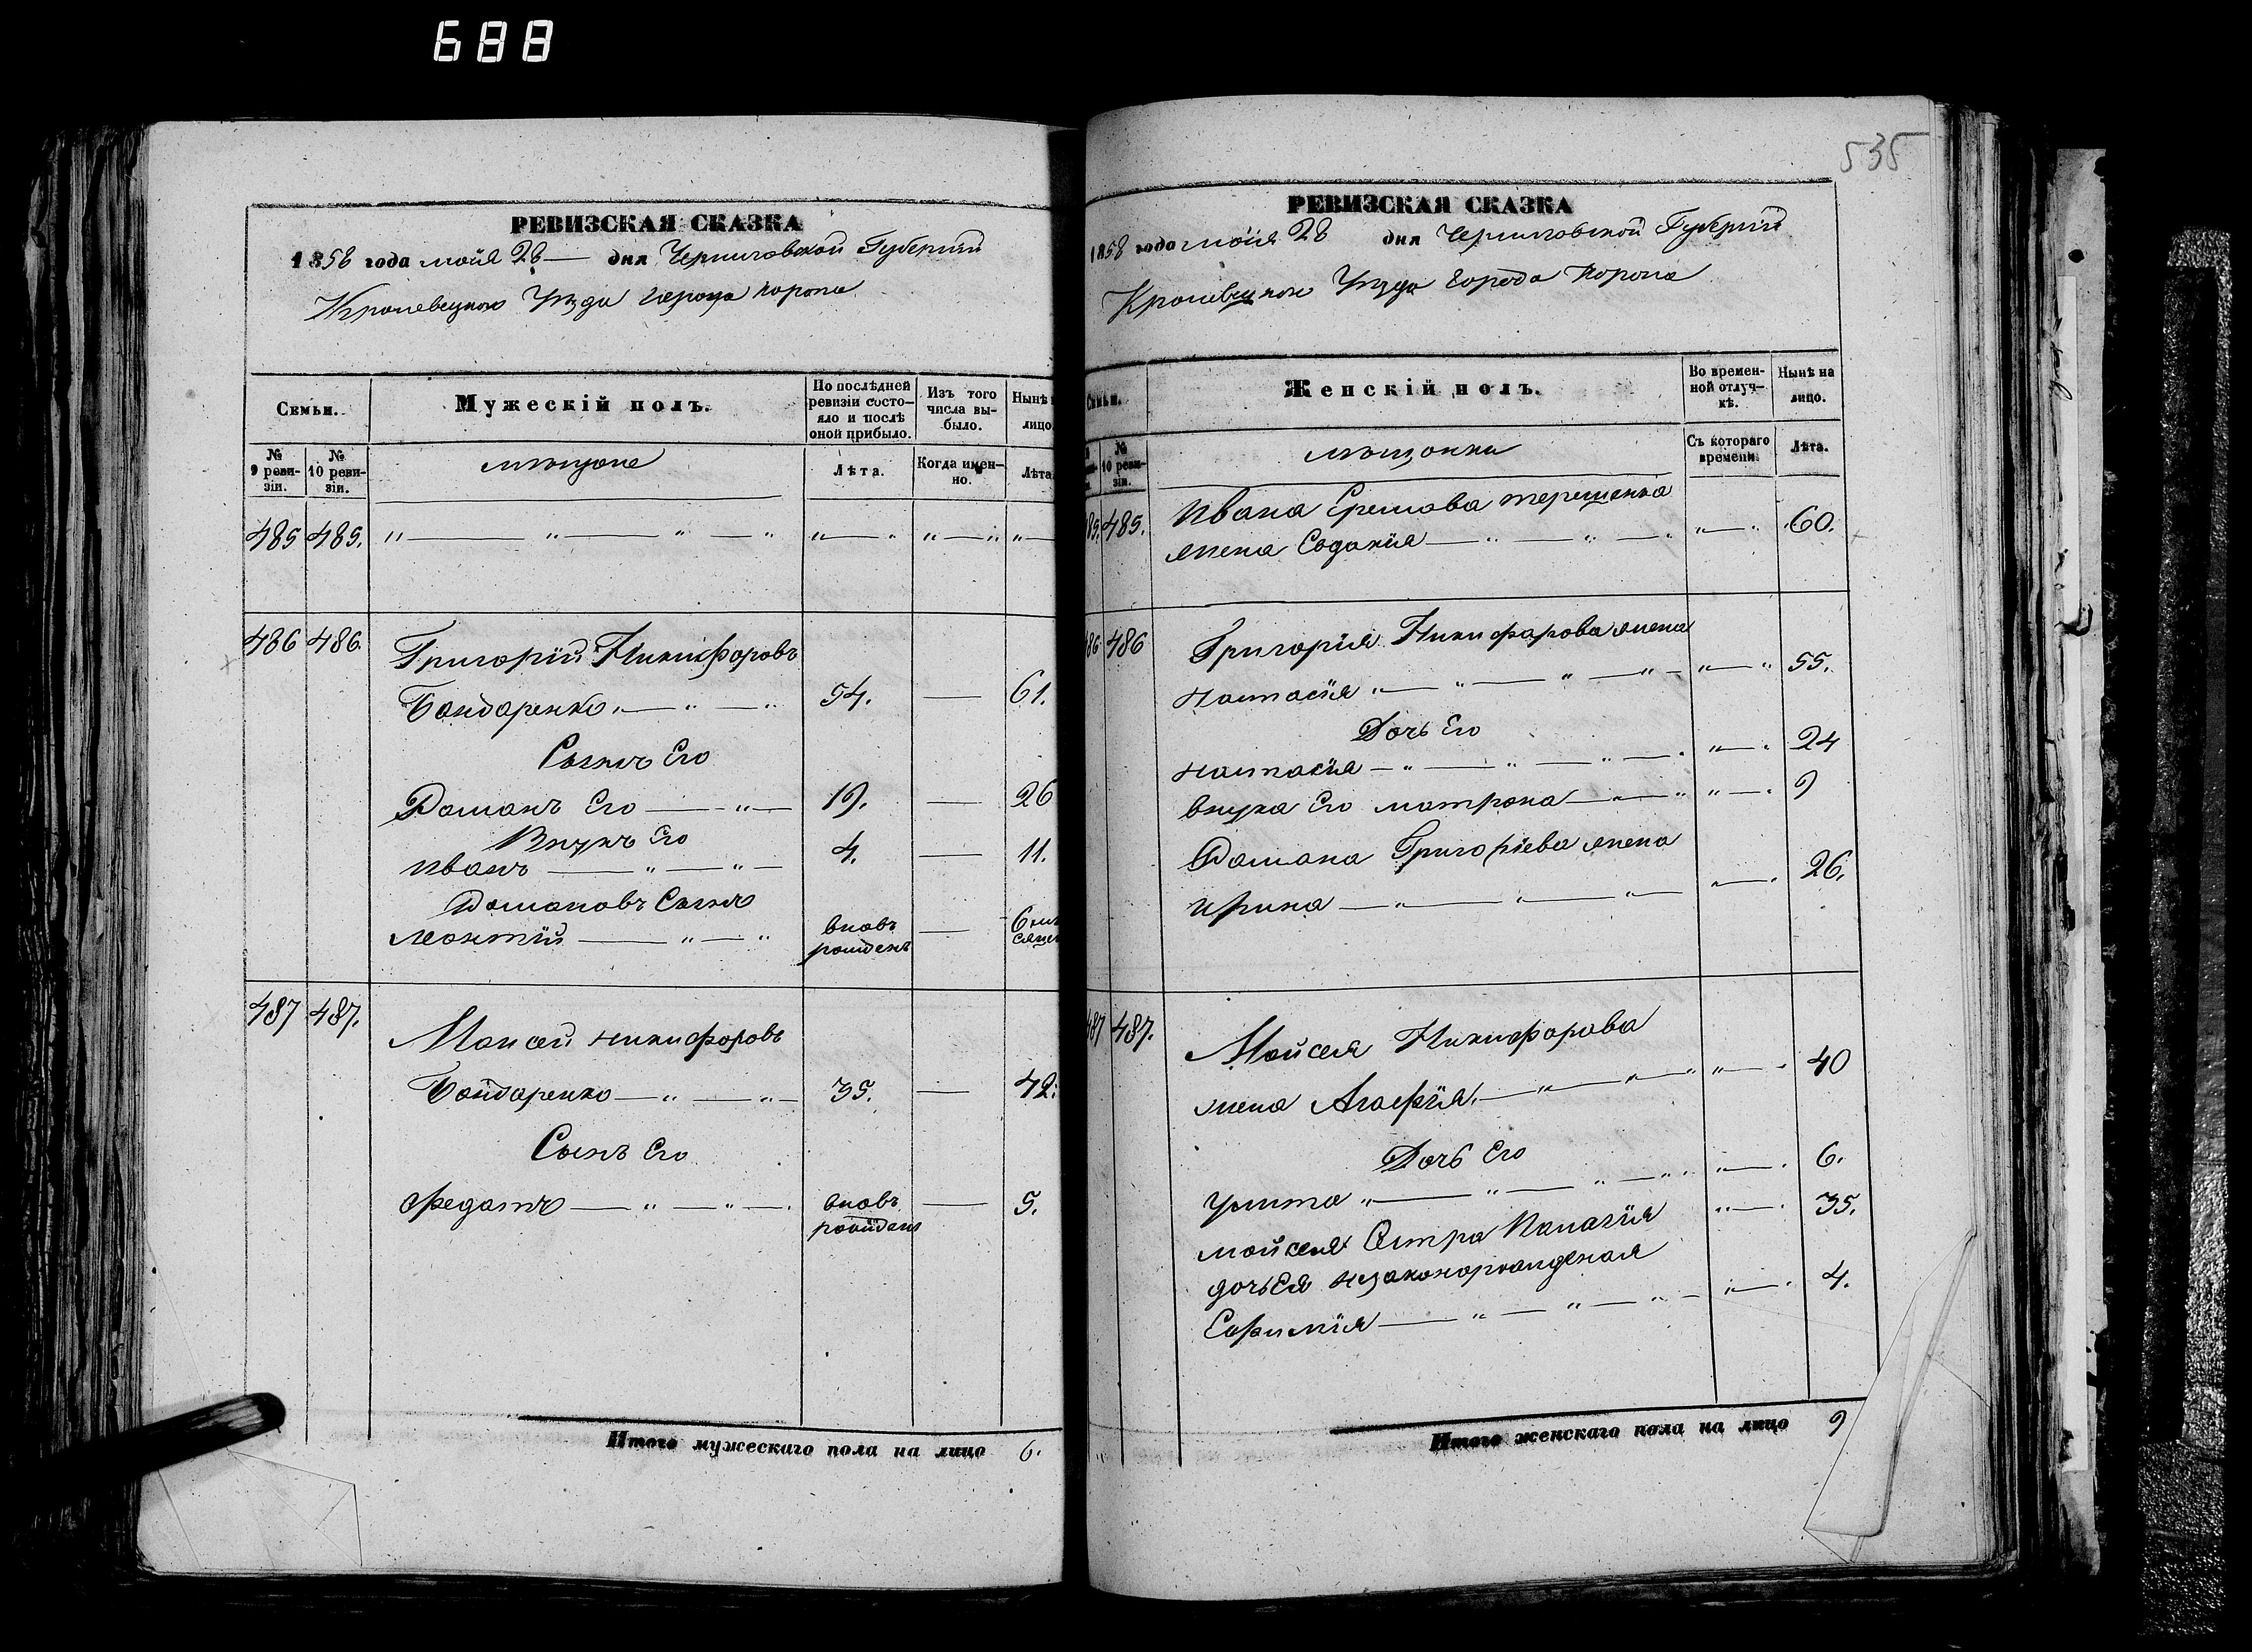 688
535
РЕВИЗСКАЯ СКАЗКА
1858 года мая 28 — дня Черниговской Губерніи
Кролевецкого Уѣзда города Коропа
Семьи.
Мужескій полъ.
По послѣдней ревизіи состояло и послѣ оной прибыло.
Изъ того числа выбыло.
Нынѣ
лицо
№ 9 ревизіи.
№ 10 ревизіи.
мѣщане
Лѣта.
Когда именно.
Лѣта
485 485. „ — „ — „ — „ „ — „ „ — „ „ —
486 486. Григорій Никифоровъ
Бондаренко „ — „ — „ 54. — 61.
Сынъ Его
Доманъ Его — „ — 19. — 26
Внукъ Его
Иванъ — „ — „ — 4. — 11.
Домановъ Сынъ
Леонтій — „ — „ вновь рожденъ — 6 мѣ
сяцев
487 487. Моисей Никифоровъ
Бондаренко — „ — „ — 35. — 42.
Сынъ Его
Федотъ — „ — „ — . вновь рожденъ — 5.
Итого мужескаго пола на лицо 6.
РЕВИЗСКАЯ СКАЗКА
1858 года мая 28 дня Черниговской Губерніи
Кролевецкого Уѣзда города Коропа
Семьи.
Женскій полъ.
Во временной отлучкѣ.
Нынѣ на лицо.
№ 10 ревизіи.
мѣщанки
Съ котораго времени.
Лѣта.
85. 485. Ивана Ерешова Терещенка
жена Евдокія — „ — „ — „ „ — „ 60.
86 486 Григорія Никифорова жена
Настасія „ — „ — „ — „ — „ — „ 55.
Дочь Его
Настасія — „ — „ — „ — „ „ — „ 24
внука Его Матрона — „ — „ „ — „ 9
Домана Григоріева жена
Ирина — „ — „ — „ — „ — „ 26.
487 487. Мойсея Никифорова
жена Агафія. — „ — „ — „ „ — „ 40
Дочь Его
Улита „ — „ — „ — „ „ — „ 6.
Мойсея Сестра Пелагія „ — „ 35.
дочь Ея незаконорожденая
Ефимія — „ — „ — „ — „ — „ 4.
Итого женскаго пола на лицо 9